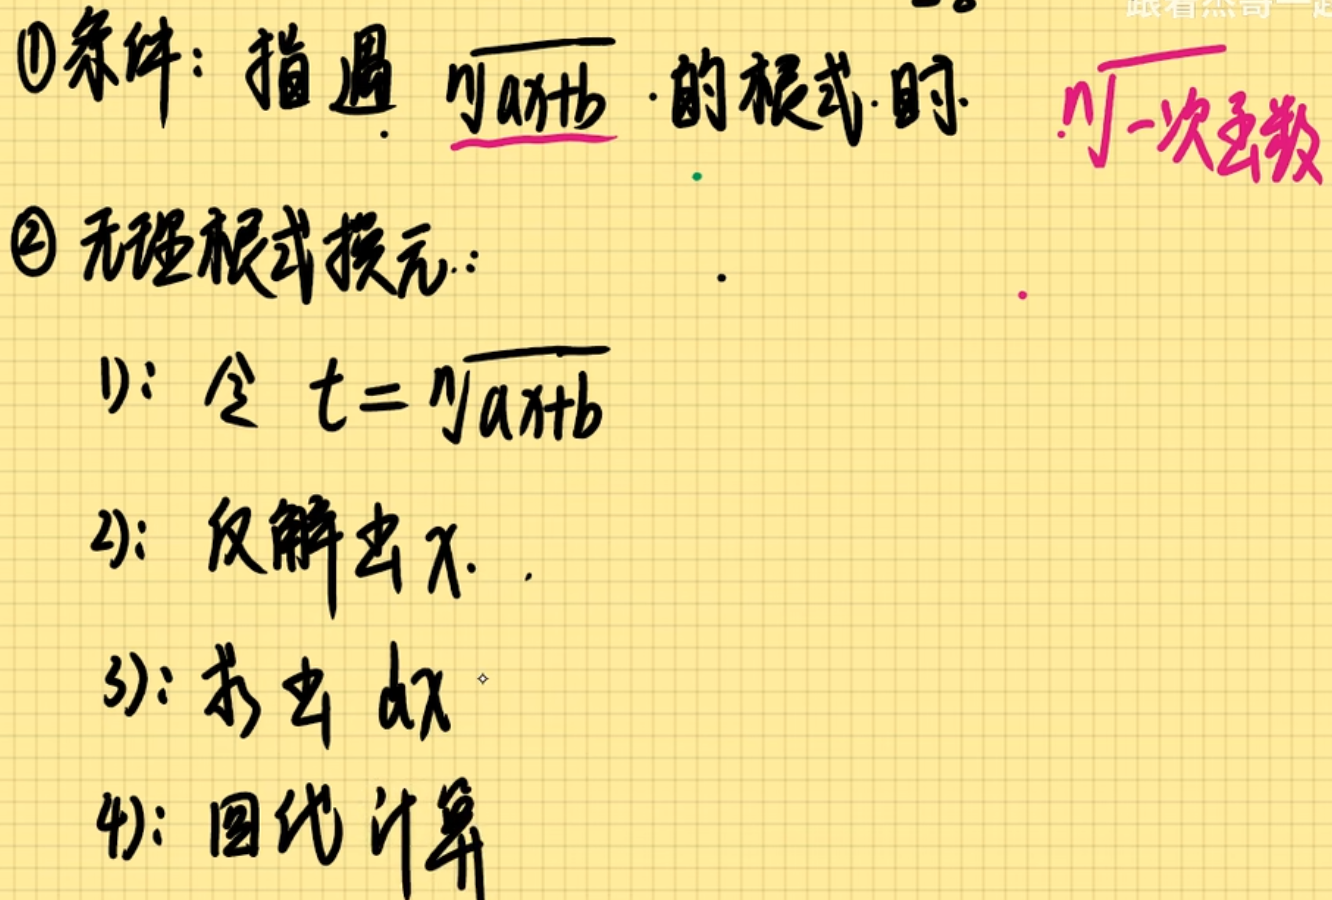 跟着杰哥一起
①条件: 指遇 ⁿ√ax+b 的根式时. ⁿ√一次函数
② 无理根式换元:
1): 令 t = ⁿ√ax+b
2): 反解出 x.
3): 求出 dx
4): 回代计算